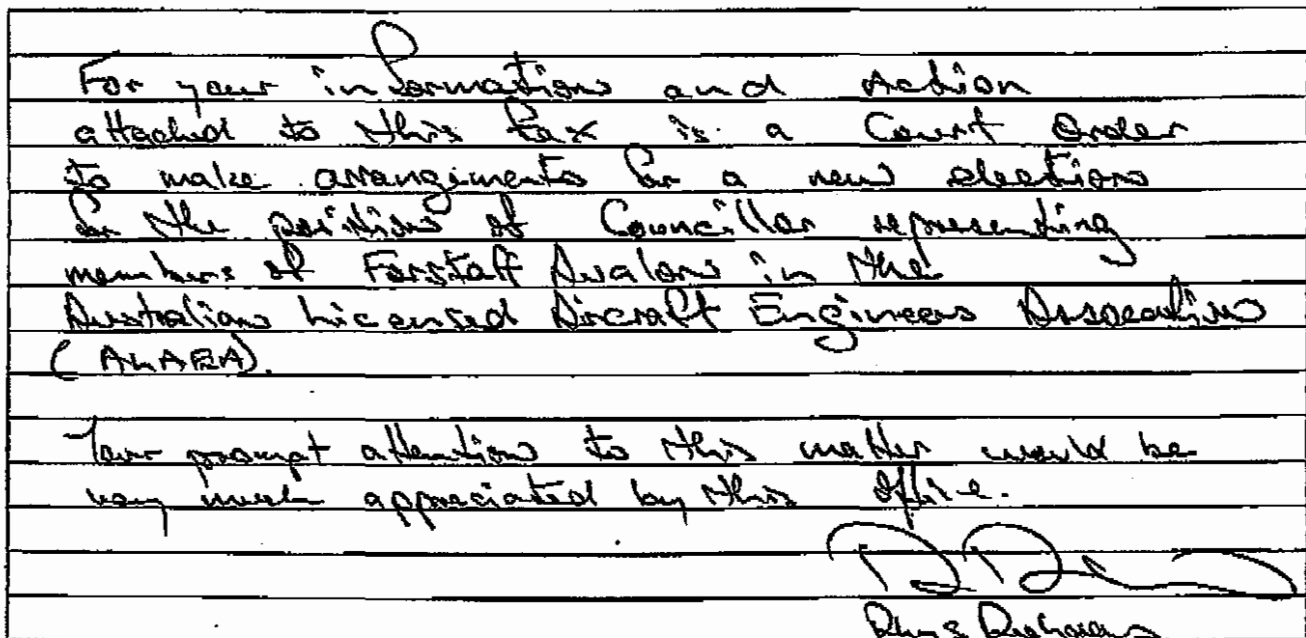 For your information and Action
attached to this fax is a Court Order
to make arrangements for a new election
for the position of Councillor representing
members of Forstaff Avalon in the
Australian Licensed Aircraft Engineers Association
(ALAEA).
Your prompt attention to this matter would be
very much appreciated by this office.